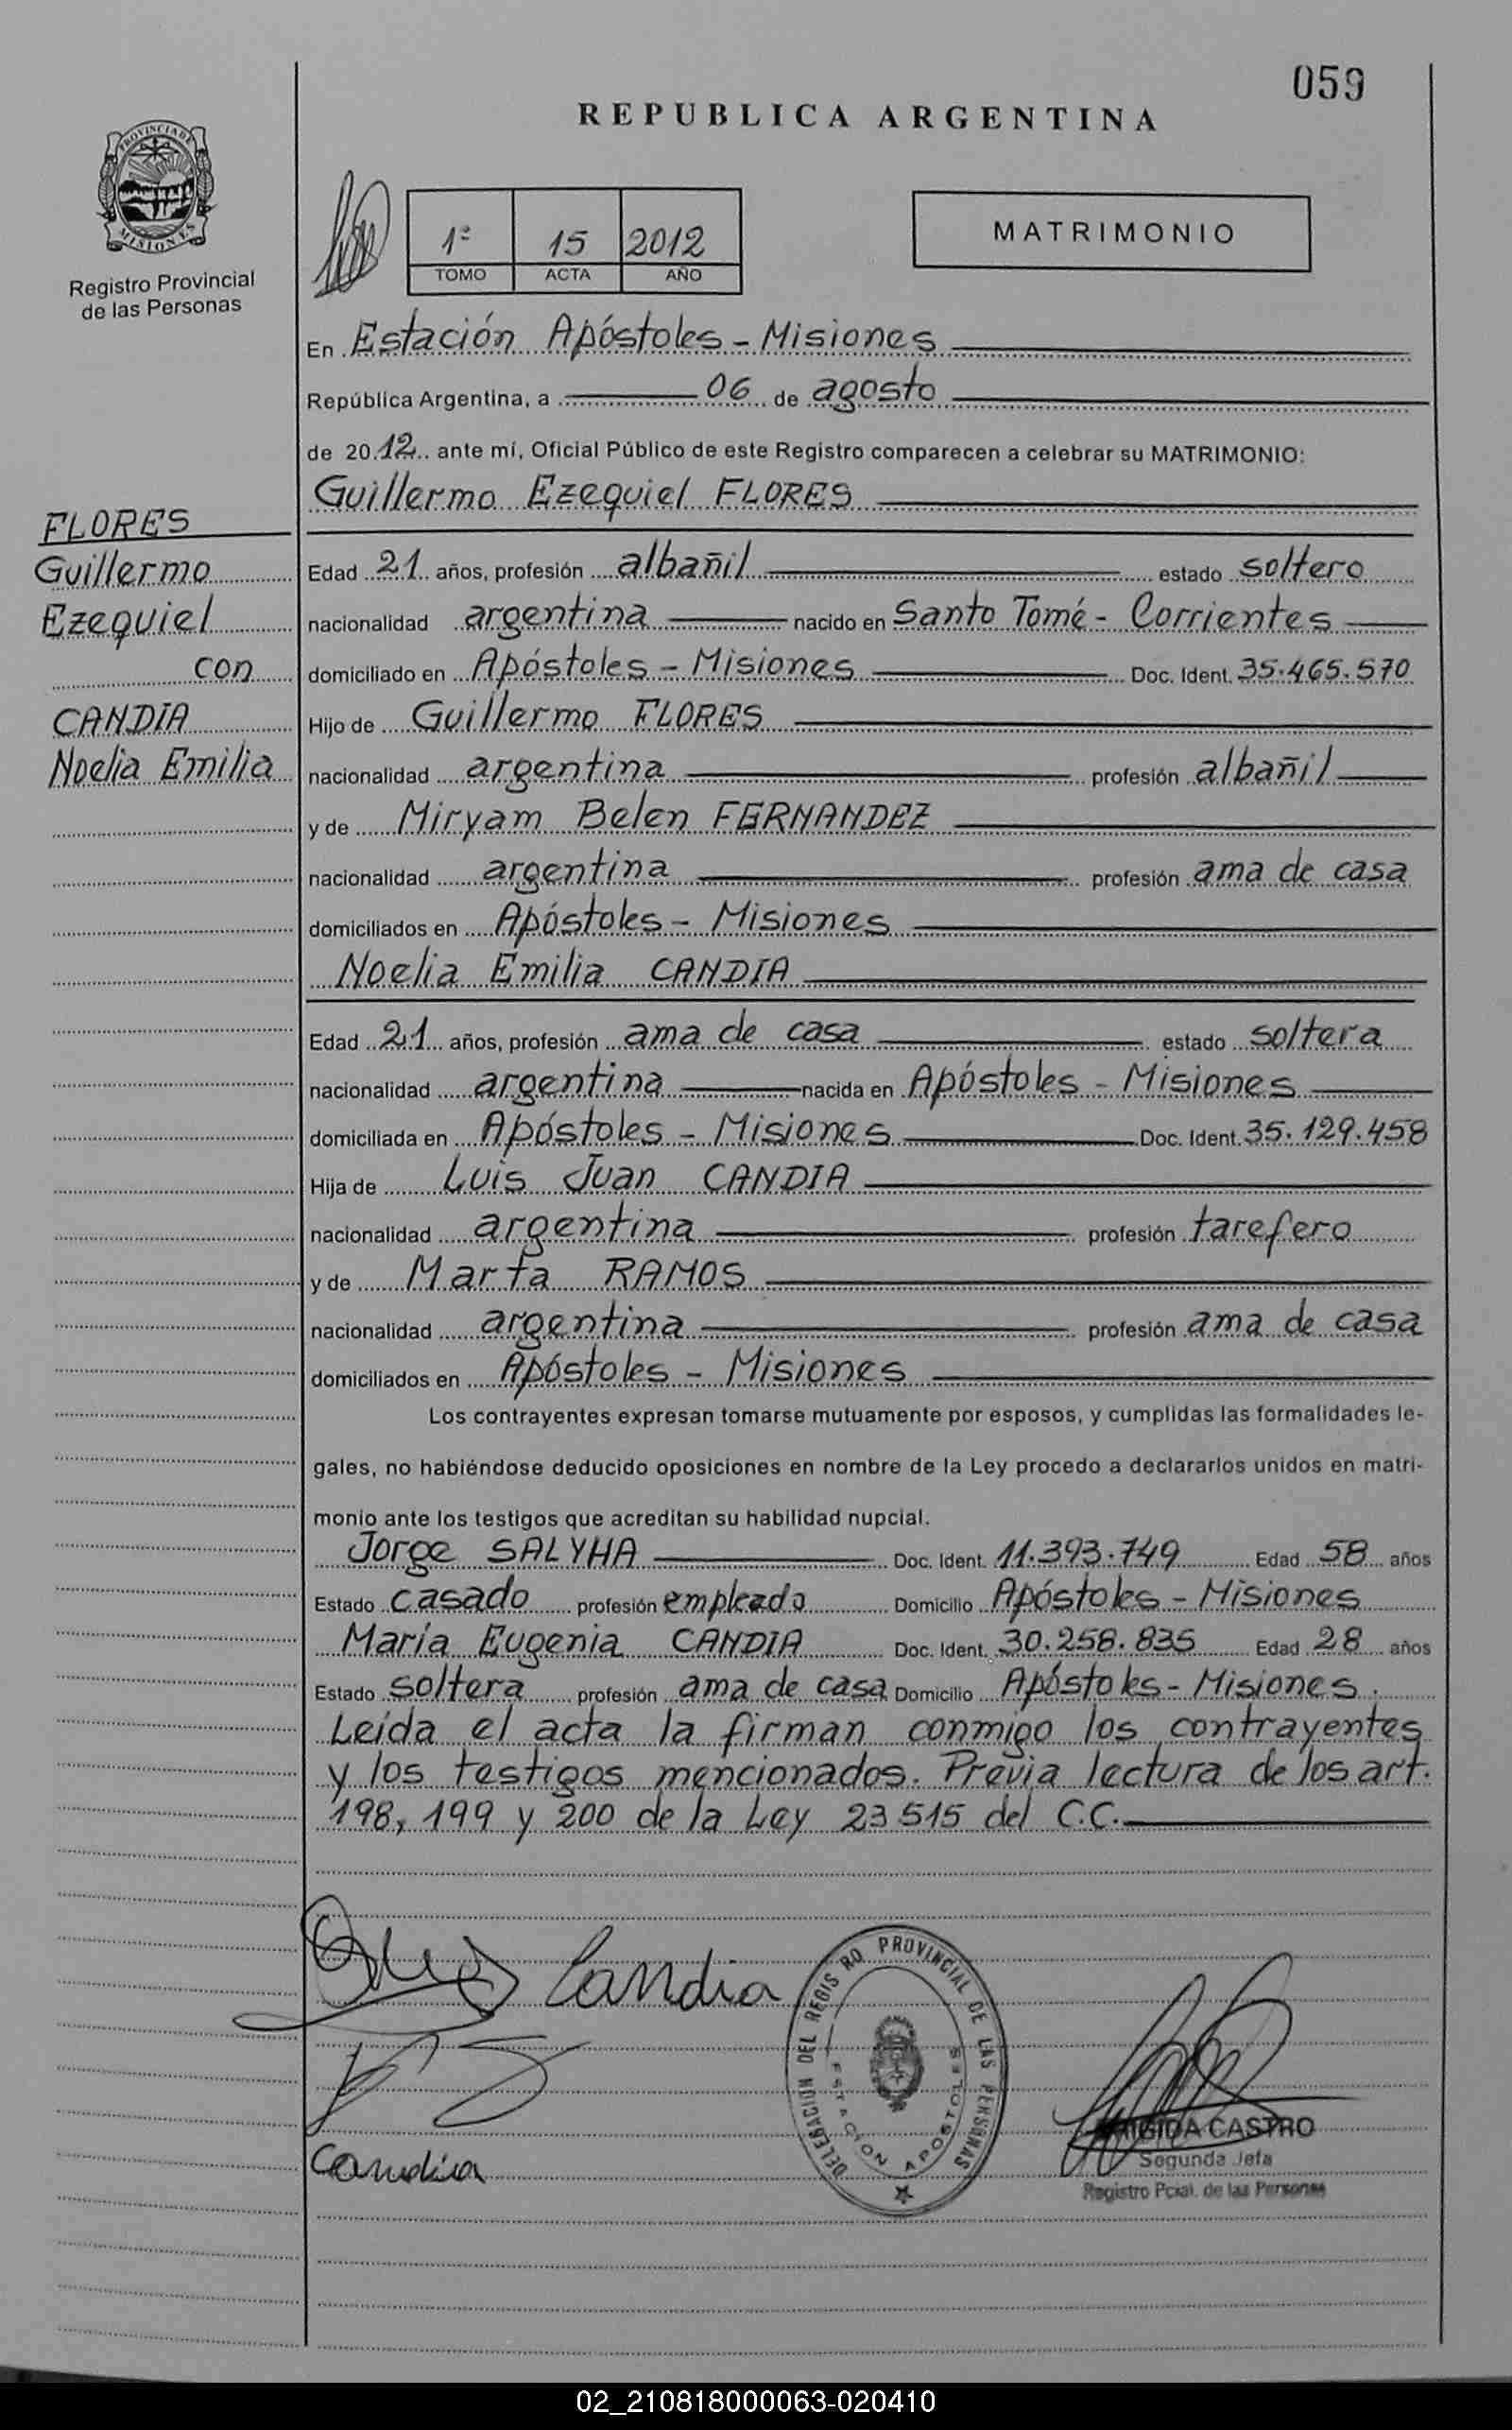 059
REPUBLICA ARGENTINA
PROVINCIA DE
MISIONES
Registro Provincial
de las Personas
1º 15 2012
TOMO ACTA AÑO
MATRIMONIO
En Estación Apóstoles - Misiones
República Argentina, a 06 de agosto
de 2012 ante mí, Oficial Público de este Registro comparecen a celebrar su MATRIMONIO:
Guillermo Ezequiel FLORES
FLORES
Guillermo
Ezequiel
con
CANDIA
Noelia Emilia
Edad 21 años, profesión albañil estado soltero
nacionalidad argentina nacido en Santo Tomé - Corrientes
domiciliado en Apóstoles - Misiones Doc. Ident. 35.465.570
Hijo de Guillermo FLORES
nacionalidad argentina profesión albañil
y de Miryam Belen FERNANDEZ
nacionalidad argentina profesión ama de casa
domiciliados en Apóstoles - Misiones
Noelia Emilia CANDIA
Edad 21 años, profesión ama de casa estado soltera
nacionalidad argentina nacida en Apóstoles - Misiones
domiciliada en Apóstoles - Misiones Doc. Ident. 35.129.458
Hija de Luis Juan CANDIA
nacionalidad argentina profesión tarefero
y de Marta RAMOS
nacionalidad argentina profesión ama de casa
domiciliados en Apóstoles - Misiones
Los contrayentes expresan tomarse mutuamente por esposos, y cumplidas las formalidades le-
gales, no habiéndose deducido oposiciones en nombre de la Ley procedo a declararlos unidos en matri-
monio ante los testigos que acreditan su habilidad nupcial.
Jorge SALYHA Doc. Ident. 11.393.749 Edad 58 años
Estado casado profesión empleado Domicilio Apóstoles - Misiones
María Eugenia CANDIA Doc. Ident. 30.258.835 Edad 28 años
Estado soltera profesión ama de casa Domicilio Apóstoles - Misiones.
Leída el acta la firman conmigo los contrayentes
y los testigos mencionados. Previa lectura de los art.
198, 199 y 200 de la Ley 23515 del C.C.
Candia
DELEGACION DEL REGISTRO PROVINCIAL DE LAS PERSONAS
ESTACION APOSTOLES
CASTRO
Segunda Jefa
Registro Pcial. de las Personas
Candia
02_210818000063-020410